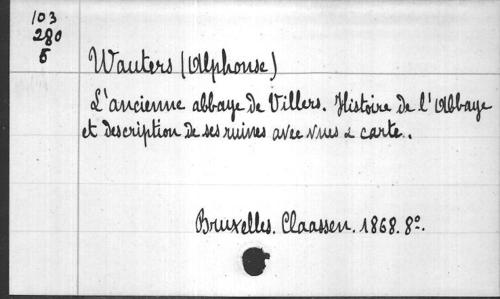 103
280
5
Wauters (Alphonse)
L'ancienne abbaye de Villers. Histoire de l'Abbaye
et description de ses ruines avec vues & carte..
Bruxelles. Claassen. 1868. 8º.